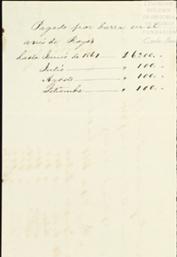 Pagado por barra en el
mes de Mayo
hasta Junio de 1861 — $ 6200.-
Julio — " 100.-
Agosto — " 100.-
Setiembre — " 100.-